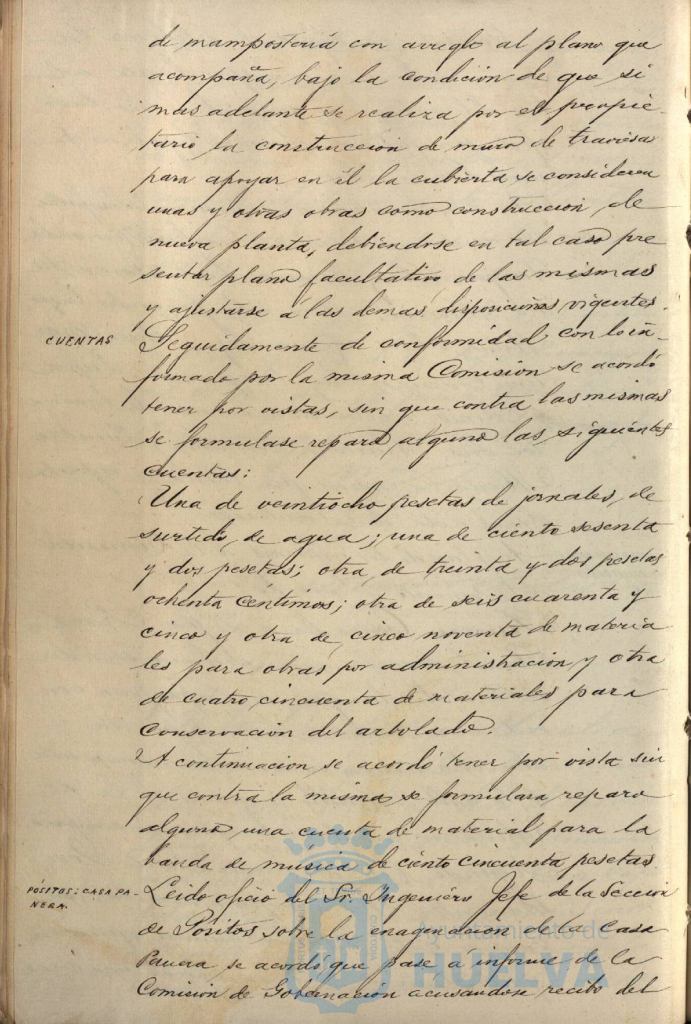 de mampostería con arreglo al plano que
acompaña, bajo la condición de que si
mas adelante se realiza por el propie-
tario la construccion de muro de traviesa
para apoyar en él la cubierta se consideren
unas y otras obras como construccion de
nueva planta, debiendose en tal caso pre
sentar plano facultativo de las mismas
y ajustarse á las demas disposiciones vigentes.
CUENTAS
Seguidamente de conformidad con lo in-
formado por la misma Comisión se acordó
tener por vistas, sin que contra las mismas
se formulase reparo alguno las siguientes
cuentas:
Una de veintiocho pesetas de jornales de
surtido de agua; una de ciento sesenta
y dos pesetas; otra de treinta y dos pesetas
ochenta centimos; otra de seis cuarenta y
cinco y otra de cinco noventa de materia
les para obras por administración y otra
de cuatro cincuenta de materiales para
conservación del arbolado.
A continuacion se acordó tener por vista sin
que contra la misma se formulara reparo
alguno una cuenta de material para la
banda de música de ciento cincuenta pesetas
PÓSITOS: CASA PA-
NERA.
Leido oficio del Sr. Ingeniero Jefe de la Seccion
de Pósitos sobre la enagenacion de la Casa
Panera se acordó que pase a informe de la
Comisión de Gobernación acusandose recibo del
Ayuntamiento de
HUELVA